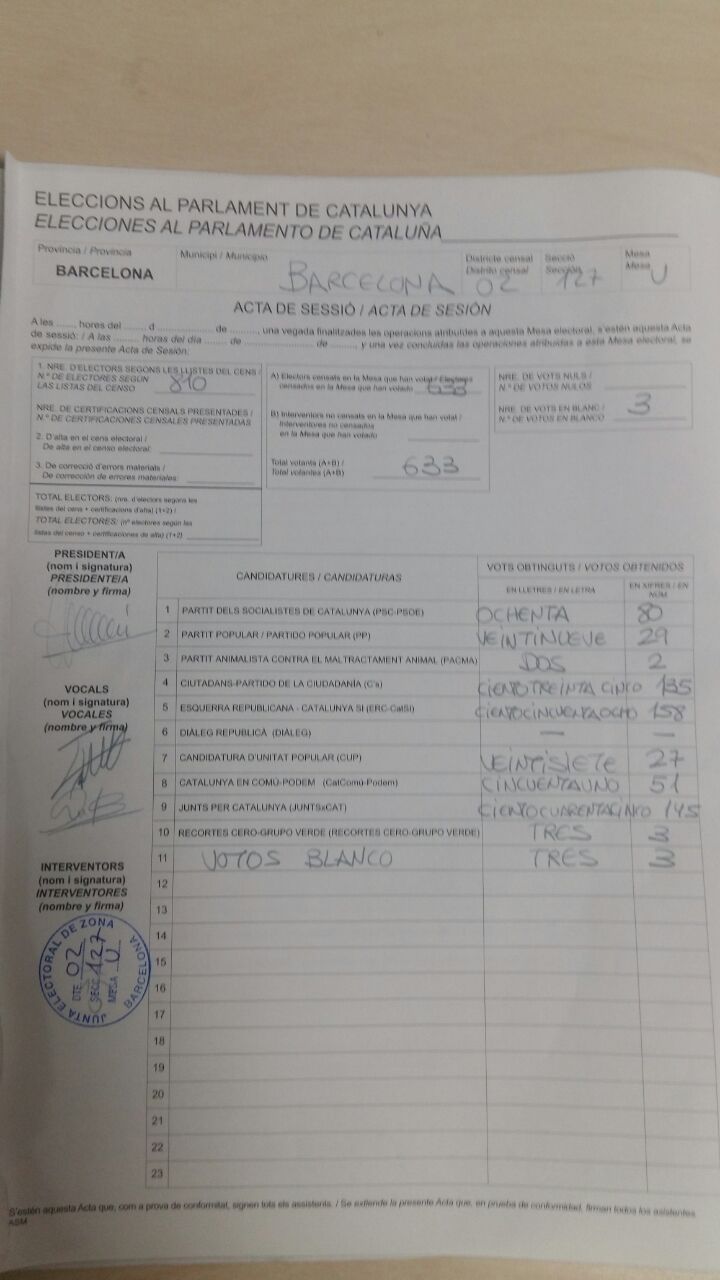 ELECCIONS AL PARLAMENT DE CATALUNYA
ELECCIONES AL PARLAMENTO DE CATALUÑA
Provincia / Provincia
BARCELONA
Municipi / Municipio
BARCELONA
Districte censal
Distrito censal
02
Secció
Sección
127
Mesa
Mesa
U
ACTA DE SESSIÓ / ACTA DE SESIÓN
A les ........ hores del ...... d .......................... de .........., una vegada finalitzades les operacions atribuïdes a aquesta Mesa electoral, s'estén aquesta Acta
de sessió: / A las ........ horas del día ...... de .................... de .........., y una vez concluidas las operaciones atribuidas a esta Mesa electoral, se
expide la presente Acta de Sesión:
1. NRE. D'ELECTORS SEGONS LES LLISTES DEL CENS /
N.º DE ELECTORES SEGÚN
LAS LISTAS DEL CENSO
810
NRE. DE CERTIFICACIONS CENSALS PRESENTADES /
N.º DE CERTIFICACIONES CENSALES PRESENTADAS
2. D'alta en el cens electoral /
De alta en el censo electoral:
3. De correcció d'errors materials /
De corrección de errores materiales:
TOTAL ELECTORS: (nre. d'electors segons les
llistes del cens + certificacions d'alta) (1+2) /
TOTAL ELECTORES: (nº electores según las
listas del censo + certificaciones de alta) (1+2)
A) Electors censats en la Mesa que han votat / Electores
censados en la Mesa que han votado
633
B) Interventors no censats en la Mesa que han votat /
Interventores no censados
en la Mesa que han votado
Total votants (A+B) /
Total votantes (A+B)
633
NRE. DE VOTS NULS /
N.º DE VOTOS NULOS
NRE. DE VOTS EN BLANC /
N.º DE VOTOS EN BLANCO
3
PRESIDENT/A
(nom i signatura)
PRESIDENTE/A
(nombre y firma)
VOCALS
(nom i signatura)
VOCALES
(nombre y firma)
INTERVENTORS
(nom i signatura)
INTERVENTORES
(nombre y firma)
JUNTA ELECTORAL DE ZONA
BARCELONA
DTE. 02
SECC. 127
MESA U
CANDIDATURES / CANDIDATURAS
VOTS OBTINGUTS / VOTOS OBTENIDOS
EN LLETRES / EN LETRA
EN XIFRES / EN NÚM
1 PARTIT DELS SOCIALISTES DE CATALUNYA (PSC-PSOE) OCHENTA 80
2 PARTIT POPULAR / PARTIDO POPULAR (PP) VEINTINUEVE 29
3 PARTIT ANIMALISTA CONTRA EL MALTRACTAMENT ANIMAL (PACMA) DOS 2
4 CIUTADANS-PARTIDO DE LA CIUDADANÍA (C's) CIENTO TREINTA CINCO 135
5 ESQUERRA REPUBLICANA - CATALUNYA SÍ (ERC-CatSÍ) CIENTOCINCUENTAOCHO 158
6 DIÀLEG REPUBLICÀ (DIÀLEG) — —
7 CANDIDATURA D'UNITAT POPULAR (CUP) VEINTISIETE 27
8 CATALUNYA EN COMÚ-PODEM (CatComú-Podem) CINCUENTAUNO 51
9 JUNTS PER CATALUNYA (JUNTSxCAT) CIENTOCUARENTACINCO 145
10 RECORTES CERO-GRUPO VERDE (RECORTES CERO-GRUPO VERDE) TRES 3
11 VOTOS BLANCO TRES 3
12
13
14
15
16
17
18
19
20
21
22
23
S'estén aquesta Acta que, com a prova de conformitat, signen tots els assistents. / Se extiende la presente Acta que, en prueba de conformidad, firman todos los asistentes
ASM